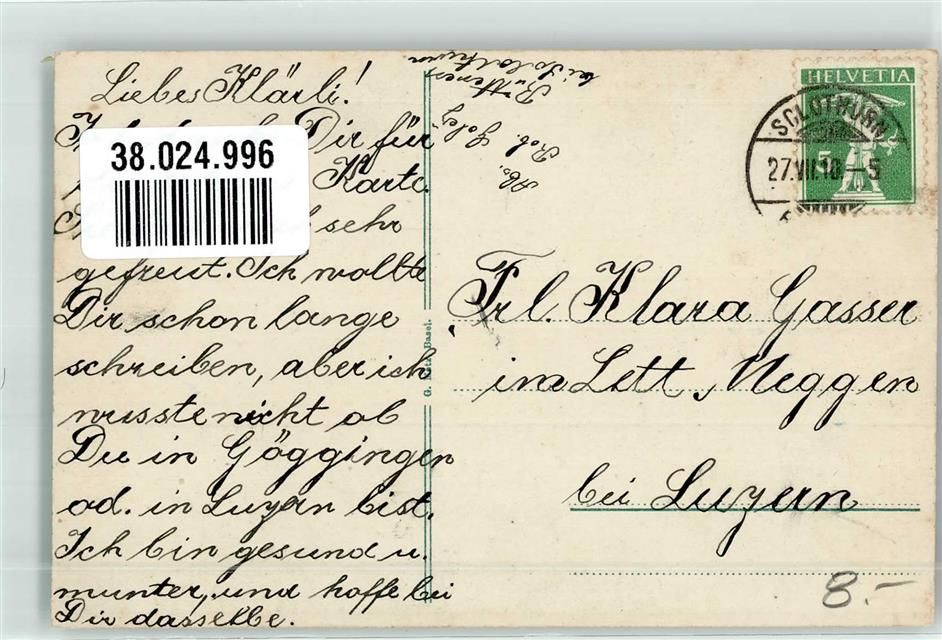 Liebes Klärli!
Dir für
Karte.
sehr
gefreut. Ich wollte
Dir schon lange
schreiben, aber ich
wusste nicht ob
Du in Göggingen
od. in Luzern bist.
Ich bin gesund u.
munter, und hoffe bei
Dir dasselbe.
38.024.996
Abs.
Rob.
bei Solothurn
G. Basel.
HELVETIA
5
SOLOTHURN
27.VII.10.-5
Frl. Klara Gasser
im Lett, Meggen
bei Luzern
8.-